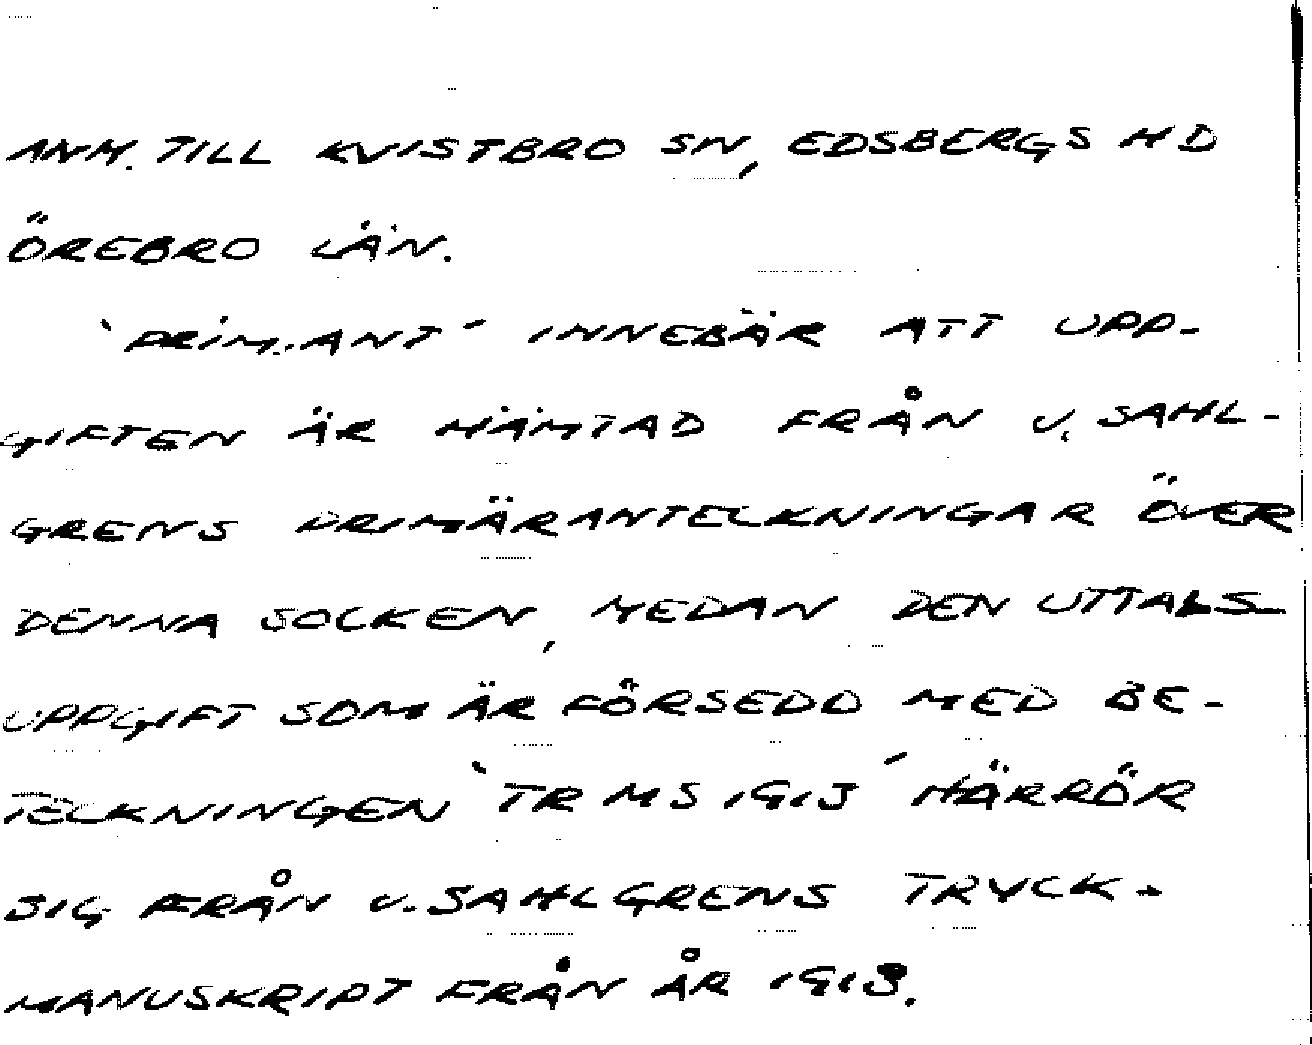 ANM. TILL KVISTBRO SN, EDSBERGS HD
ÖREBRO LÄN.
`PRIM.ANT´ INNEBÄR ATT UPP-
GIFTEN ÄR HÄMTAD FRÅN J. SAHL-
GRENS PRIMÄRANTECKNINGAR ÖVER
DENNA SOCKEN, MEDAN DEN UTTALS
UPPGIFT SOM ÄR FÖRSEDD MED BE-
TECKNINGEN `TR MS 1913´ HÄRRÖR
SIG FRÅN J. SAHLGRENS TRYCK-
MANUSKRIPT FRÅN ÅR 1913.